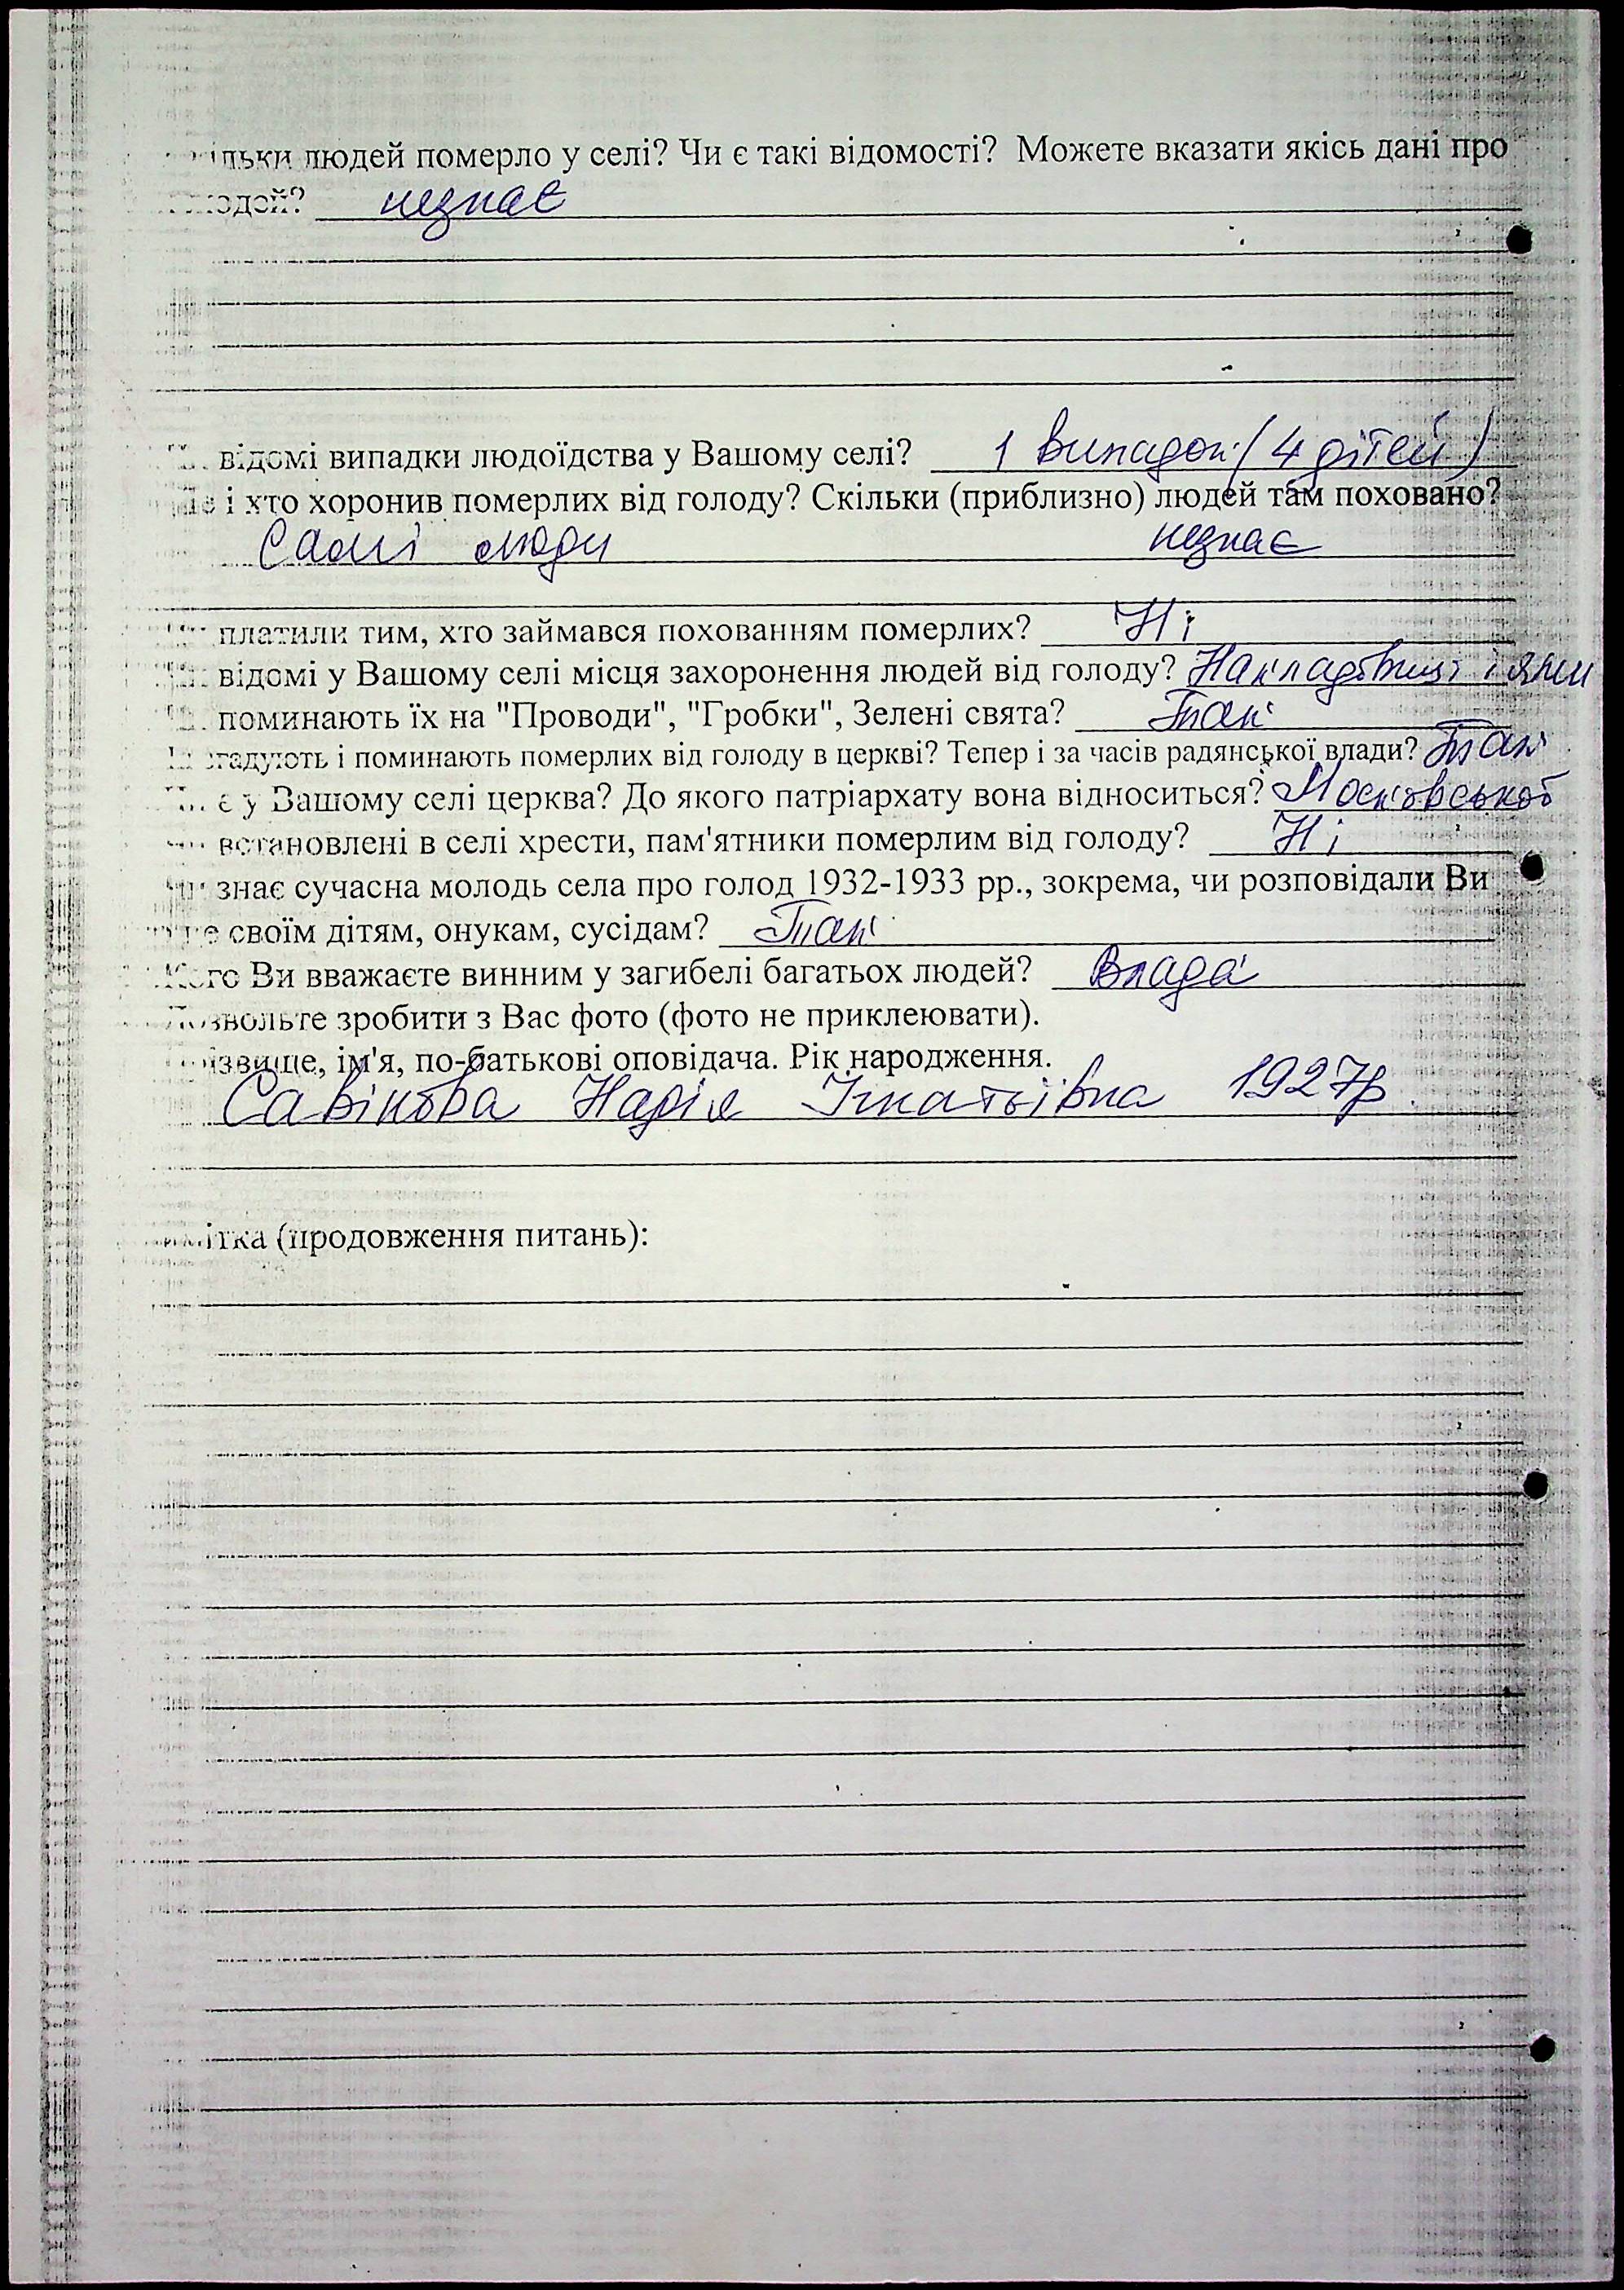 людей померло у селі? Чи є такі відомості? Можете вказати якісь дані про
незнає
відомі випадки людоїдства у Вашому селі? 1 випадок (4 дітей)
і хто хоронив померлих від голоду? Скільки (приблизно) людей там поховано?
Самі люди незнає
платили тим, хто займався похованням померлих? Ні
відомі у Вашому селі місця захоронення людей від голоду? На кладовищі і ями
поминають їх на "Проводи", "Гробки", Зелені свята? Так
згадують і поминають померлих від голоду в церкві? Тепер і за часів радянської влади? Так
є у Вашому селі церква? До якого патріархату вона відноситься? Московського
встановлені в селі хрести, пам'ятники померлим від голоду? Ні
знає сучасна молодь села про голод 1932-1933 рр., зокрема, чи розповідали Ви
своїм дітям, онукам, сусідам? Так
Кого Ви вважаєте винним у загибелі багатьох людей? Влада
Дозвольте зробити з Вас фото (фото не приклеювати).
ім'я, по-батькові оповідача. Рік народження.
Савікова Надія Ігнатіївна 1927р.
(продовження питань):